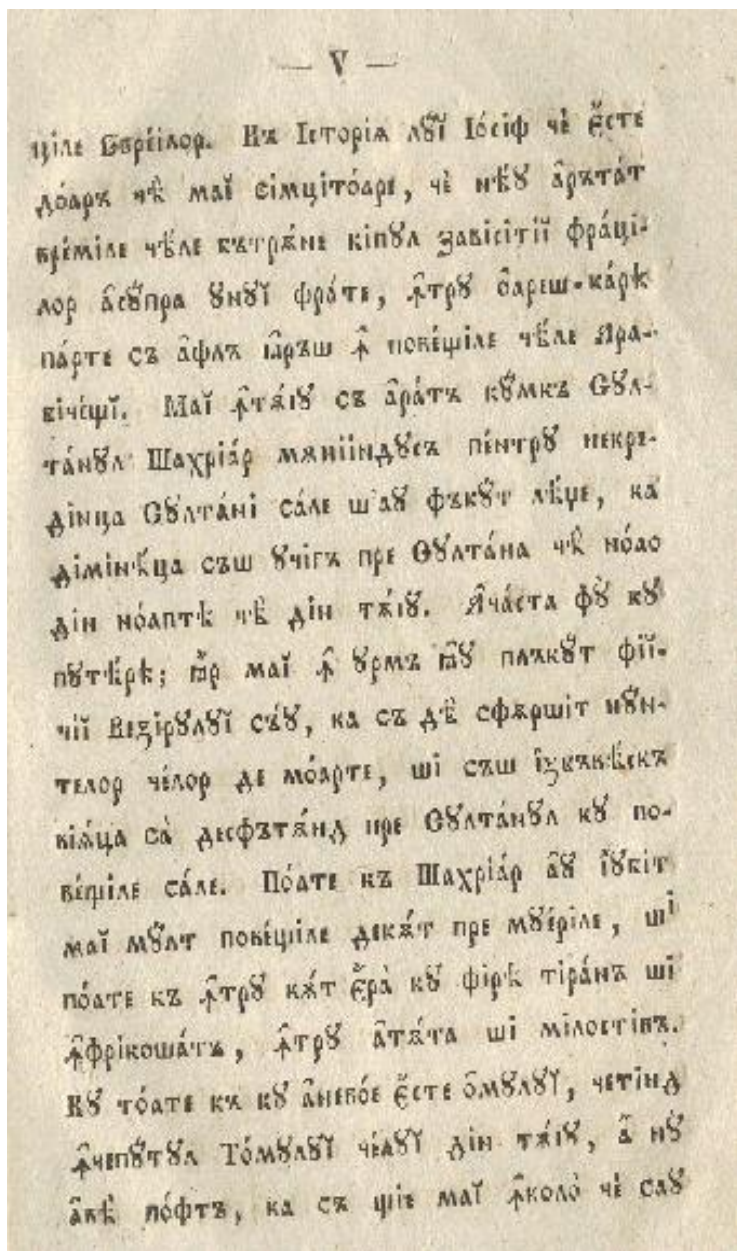 — V —
щіле Єврéілор. Къ Історіѧ лꙋ́ї Іóсіф чѐ є҆́сте
дóаръ чѣ маї сімцітóаре, чѐ нѣꙋ а҆рътáт
врéміле чѣ́ле бътрѫ́не кіпꙋл завісітїї фрáці-
лор а҆сꙋ́пра ꙋнꙋї фрáте, ꙟ҆трꙋ ѻ҆ареш-кáрѣ
пáрте съ а҆флъ ꙗ҆ръш ꙟ҆ повéщіле чѣ́ле Ара-
вічéщї. Маї ꙟ҆тѫ́ıꙋ съ а҆рáтъ кꙋ́мкъ Сꙋл-
тáнꙋл Шахріáр мѫнііндꙋсъ пéнтрꙋ некре-
дінца Сꙋлтáні сáле ш'аꙋ фъкꙋ́т лѣ́џе, ка
дімінѣ́ца съш ꙋчігъ пре Сꙋлтáна чѣ нóао
дін нóаптѣ чѣ дін тѫ́ıꙋ. А҆чáста фꙋ̀ кꙋ
пꙋтѣ́рѣ; ꙗ҆р маї ꙟ҆ ꙋрмъ ꙗ҆ꙋ плъкꙋ́т фії-
чїї Везірꙋлꙋї съ́ꙋ, ка съ дѣ сфѫршіт нꙋ́н-
телор чéлор де мóарте, ші съш ізбъвѣ́скъ
віѧ́ца сà десфътѫ́нд пре Сꙋлтáнꙋл кꙋ по-
вéщіле сáле. Пóате къ Шахріáр а҆ꙋ і҆ꙋбіт
маї мꙋ́лт повéщіле декѫ́т пре мꙋéріле, ші
пóате къ ꙟ҆трꙋ кѫ́т є҆рà кꙋ фірѣ тірáнъ ші
ꙟ҆фрікошáтъ, ꙟ҆трꙋ а҆тѫ́та ші мілостівъ.
Кꙋ тóате къ кꙋ а҆невóе є҆́сте ѻ҆́мꙋлꙋї, четінд
ꙟ҆чепꙋ́тꙋл Тóмꙋлꙋї чéлꙋї дін тѫ́ıꙋ, а҆ нꙋ
а҆вѣ̀ пóфтъ, ка съ щіе маї ꙟ҆колò чѐ саꙋ